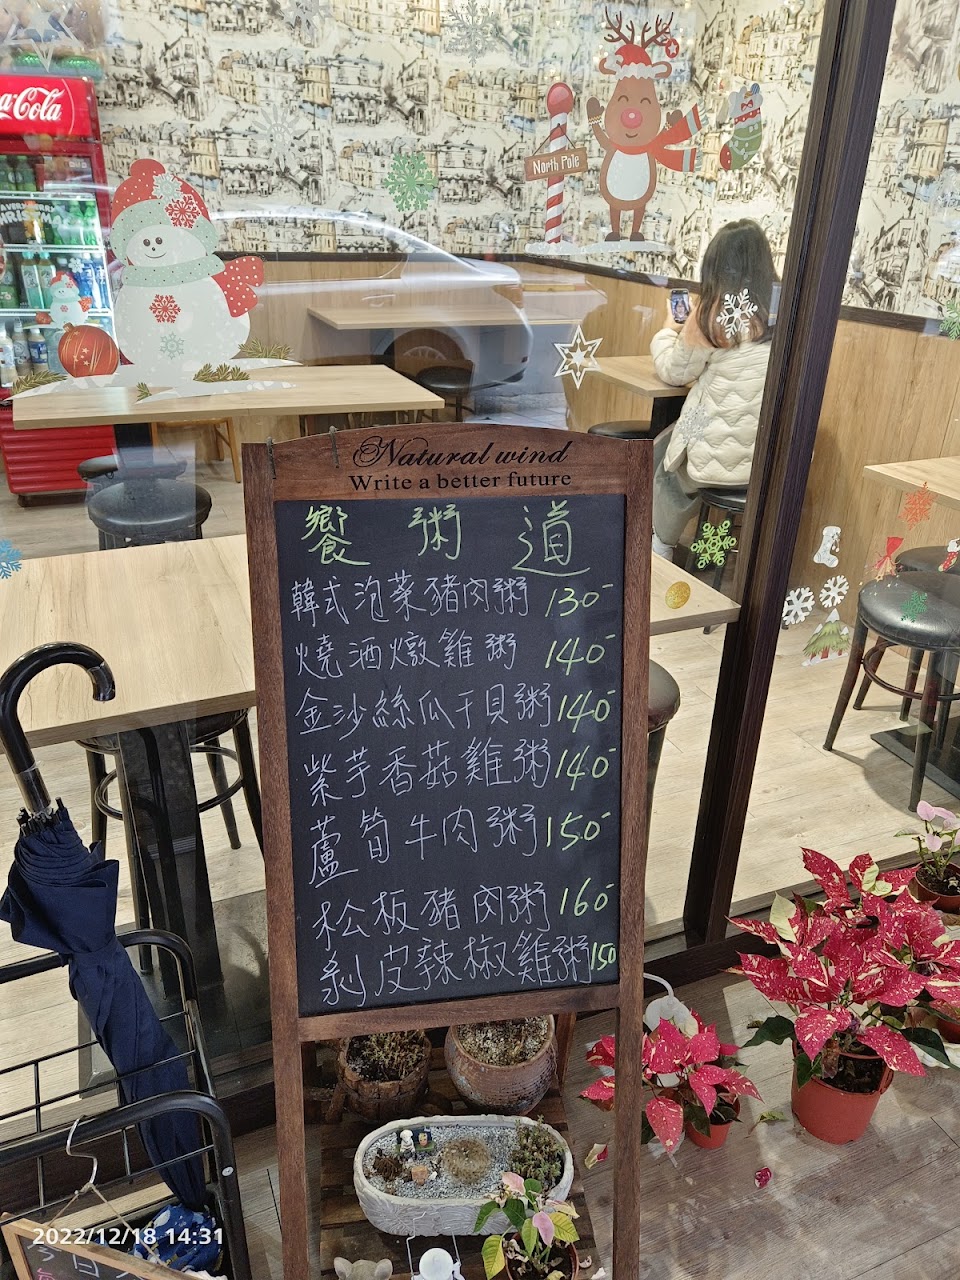 Coca-Cola
North Pole
Natural wind
Write a better future
饗 粥 道
韓式泡菜豬肉粥 130-
燒酒燉雞粥 140-
金沙絲瓜干貝粥 140-
紫芋香菇雞粥 140-
蘆筍牛肉粥 150-
松板豬肉粥 160-
剝皮辣椒雞粥 150
2022/12/18 14:31